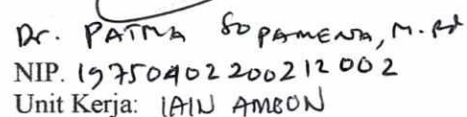 Dr. PATMA SOPAMENA, M.Pd
NIP. 19750402 200212 002
Unit Kerja: IAIN AMBON